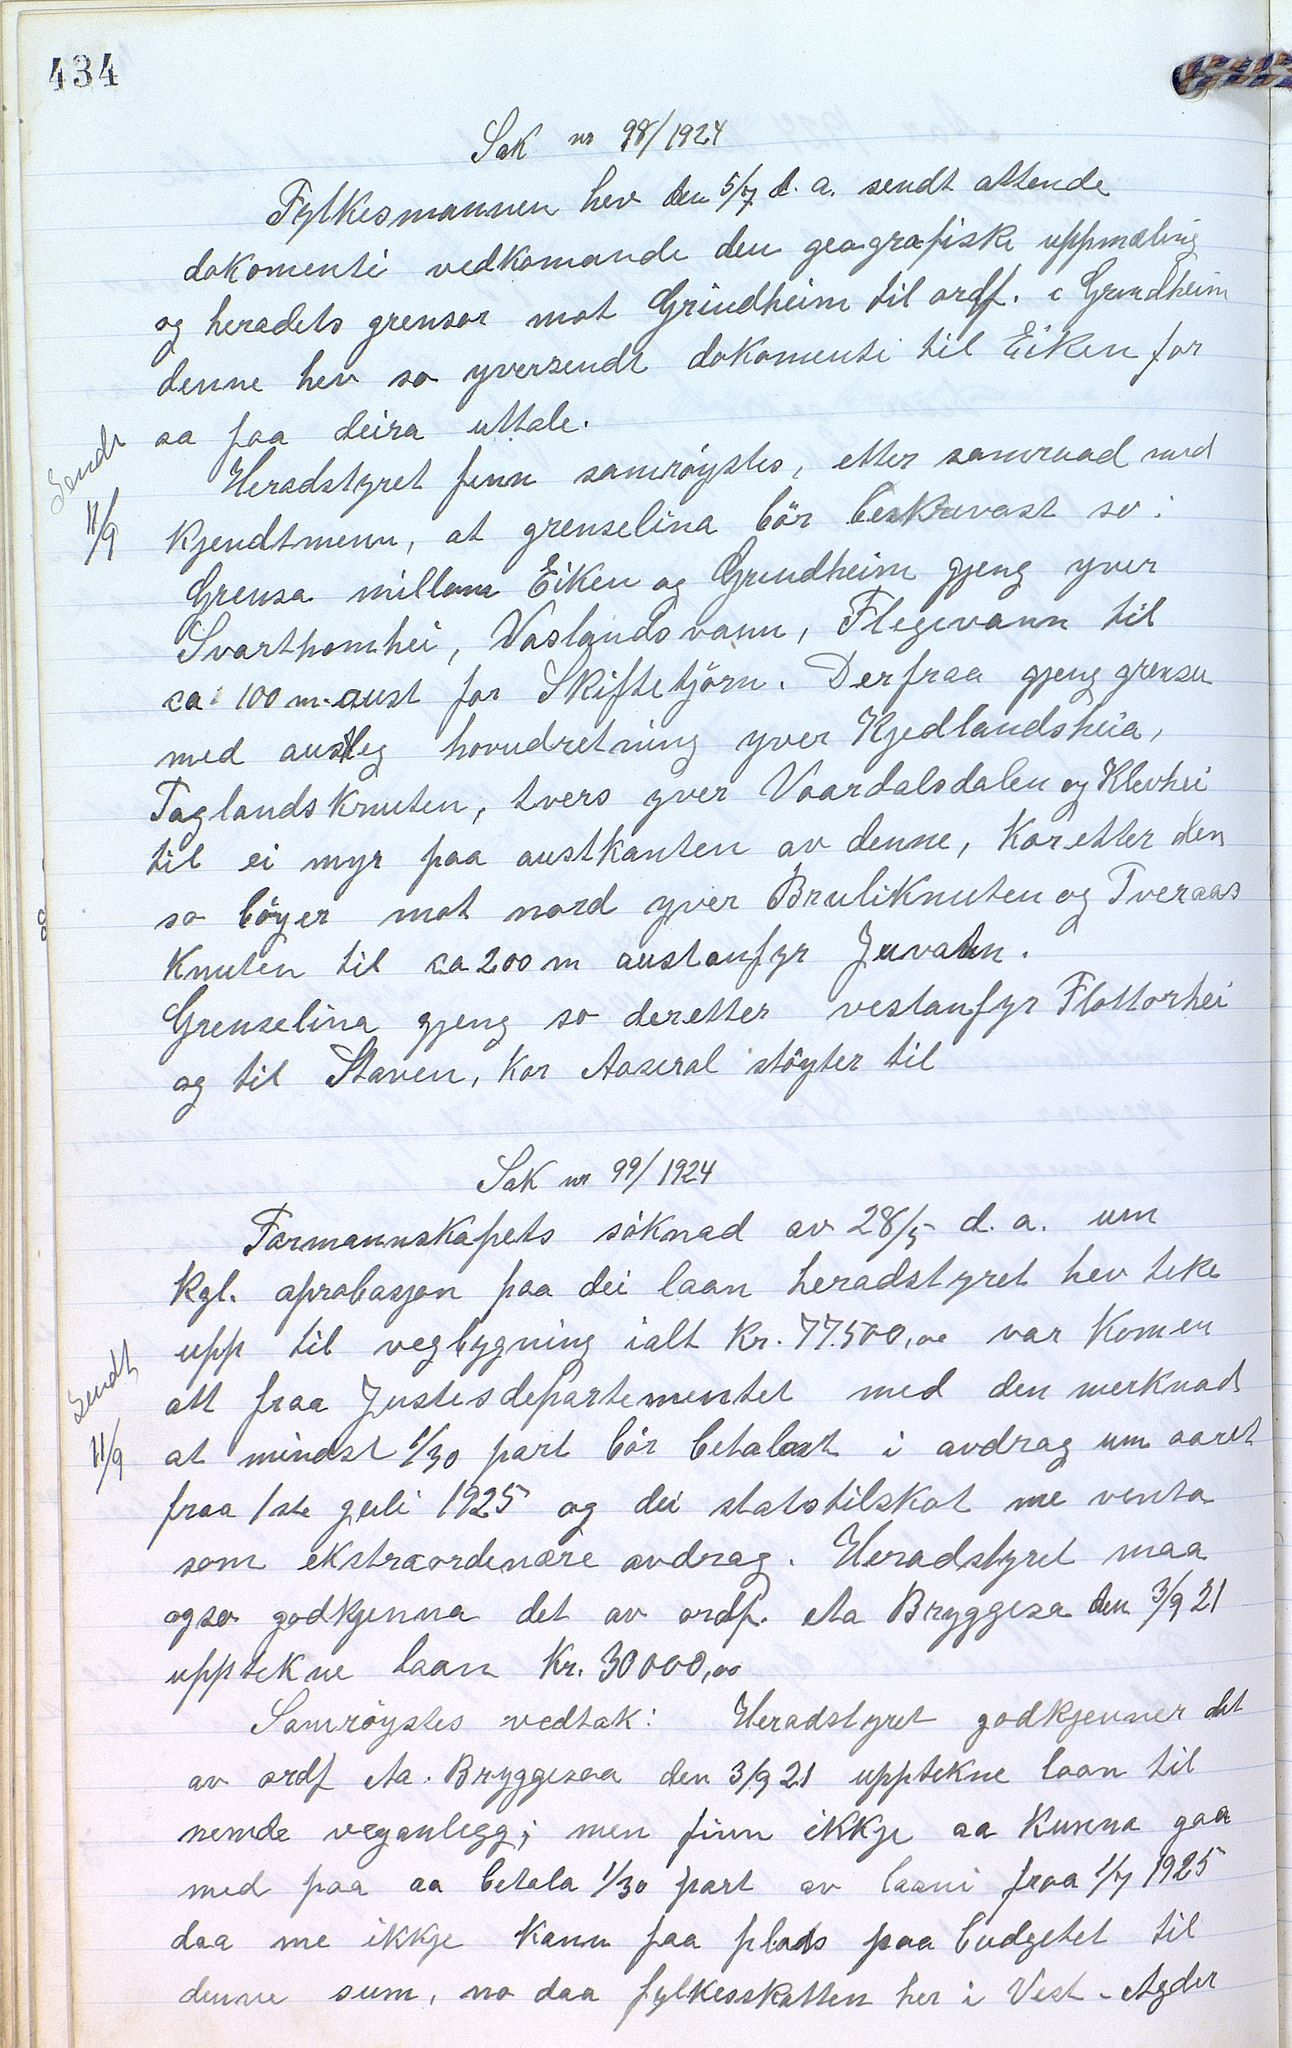 434
Sak nr 98/1924
Fylkesmannen hev den 5/7 d. a. sendt attende
dokomenti vedkomande den geografiske uppmæling
og heradets grensor mot Grindheim til ordf. i Grindheim
denne hev so yversendt dokomenti til Eiken for
aa faa deira uttale.
Sendt
11/9
Heradstyret finn samröystes, etter samraad med
kjendtmenn, at grenselina bör beskrivast so:
Grensa millom Eiken og Grindheim gjeng yver
Svarthomhei, Vaslandsvann, Flegevann til
ca 100 m. aust for Skiftetjörn. Derfraa gjeng grensa
med austleg hovudretning yver Kjedlandsheia,
Taglandsknuten, tvers yver Vaardalsdalen og Klevhei
til ei myr paa austkanten av denne, kor etter den
so böyer mot nord yver Bruliknuten og Tveraas
knuten til ca 200 m austanfyr Juvatn.
Grenselina gjeng so deretter vestanfyr Flottorhei
og til Staven, kor Aaseral stöyter til
Sak nr 99/1924
Formannskapets söknad av 28/5 d. a. um
kgl. aprobasjon paa dei laan heradstyret hev teke
upp til vegbygning ialt kr. 77.500,00 var komen
att fraa Justisdepartementet med den merknad
Sendt
11/9
at mindst 1/30 part bör betalast i avdrag um aaret
fraa 1ste juli 1925 og dei statstilskot me venta
som ekstraordenære avdrag. Heradstyret maa
ogso godkjenna det av ordf. Aa Bryggesa den 3/9 21
upptekne laan kr. 30000,00
Samröystes vedtak: Heradstyret godkjenner det
av ordf Aa. Bryggesaa den 3/9 21 upptekne laan til
nemde veganlegg; men finn ikkje aa kunna gaa
med paa aa betala 1/30 part av laani fraa 1/7 1925
daa me ikkje kann faa plads paa budgetet til
denne sum, no daa fylkesskatten her i Vest-Agder